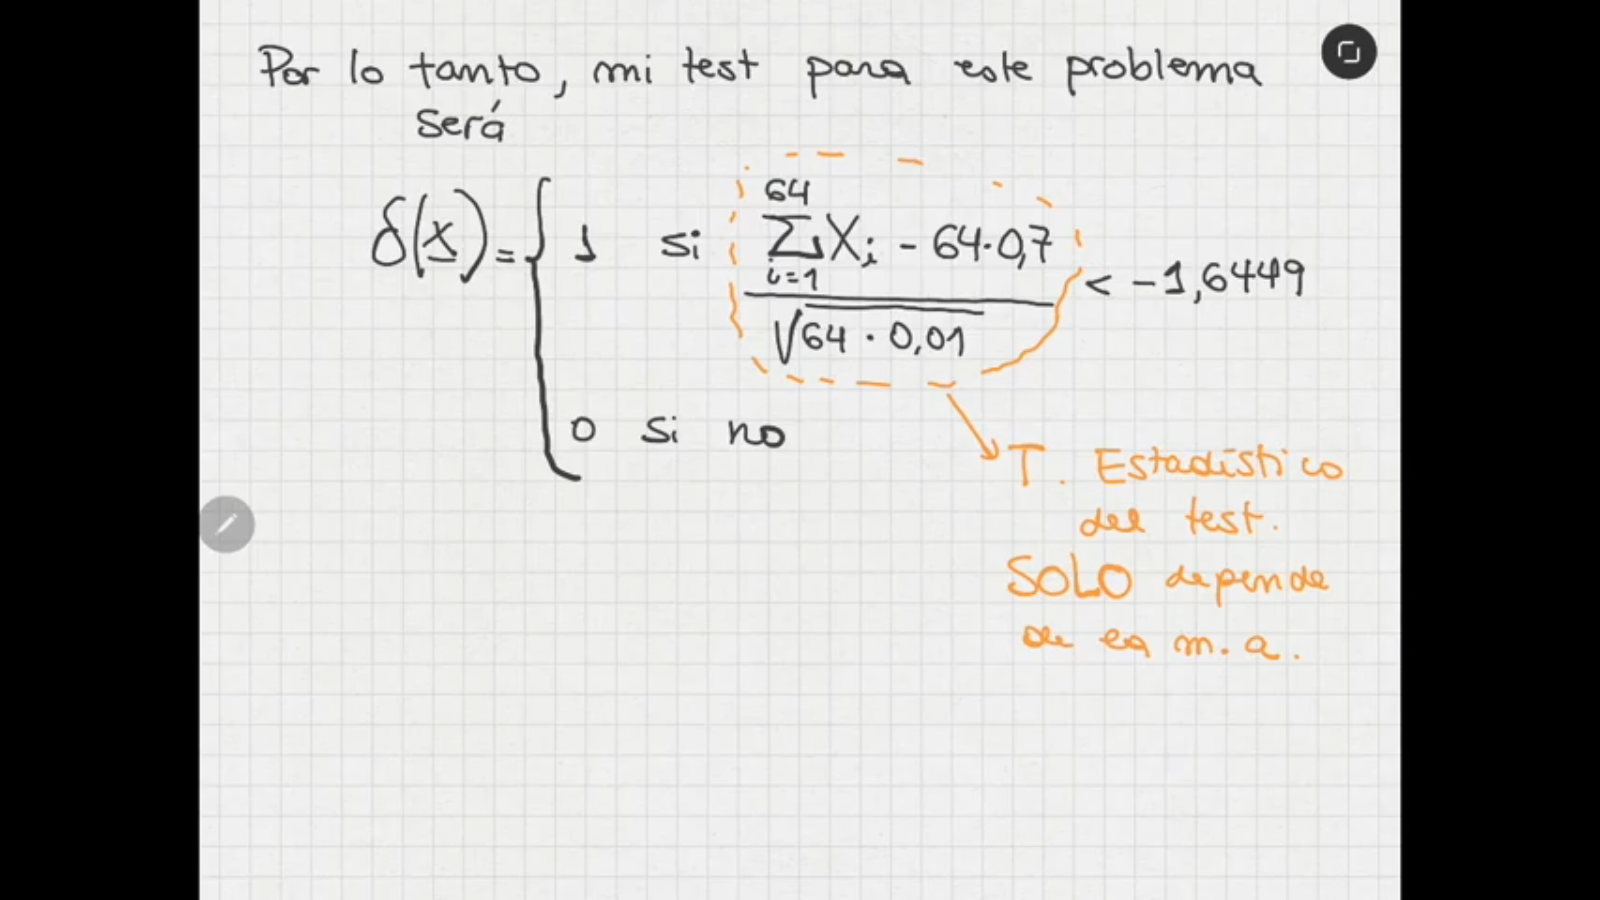 Por lo tanto, mi test para este problema
será
δ(X) = { 1 si (∑_{i=1}^{64} X_i - 64·0,7) / √(64 · 0,01) < -1,6449
0 si no
T. Estadístico
del test.
SOLO depende
de la m.a.